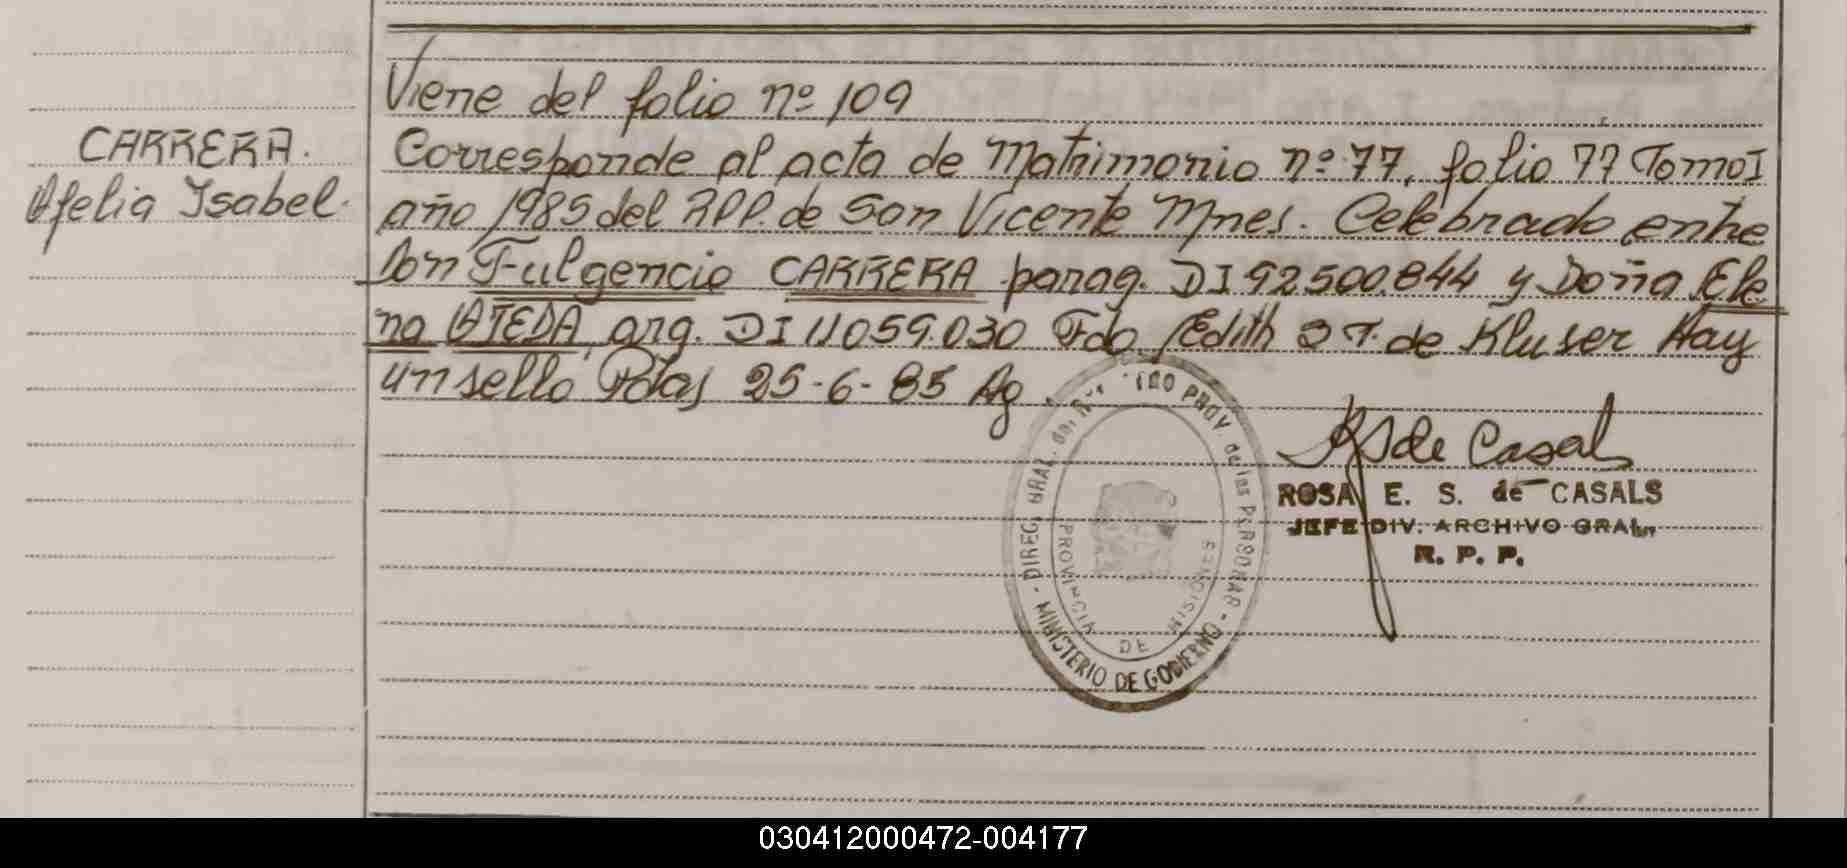 Viene del folio nº 109
CARRERA.
Ofelia Isabel.
Corresponde al acta de Matrimonio nº 77, folio 77 Tomo I
año 1985 del RPP. de San Vicente Mnes. Celebrado entre
Don Fulgencio CARRERA parag. DI 92500.844 y Doña Ele
na OJEDA, arg. DI 11059.030 Fdo. Edith de Kluser Hay
un sello Pdas 25-6-85 Ag
Rde Casals
ROSA E. S. de CASALS
JEFE DIV. ARCHIVO GRAL.
R. P. P.
DIREC. GRAL. del PROV. de las PERSONAS
MINISTERIO DE GOBIERNO
PROVINCIA DE MISIONES
030412000472-004177